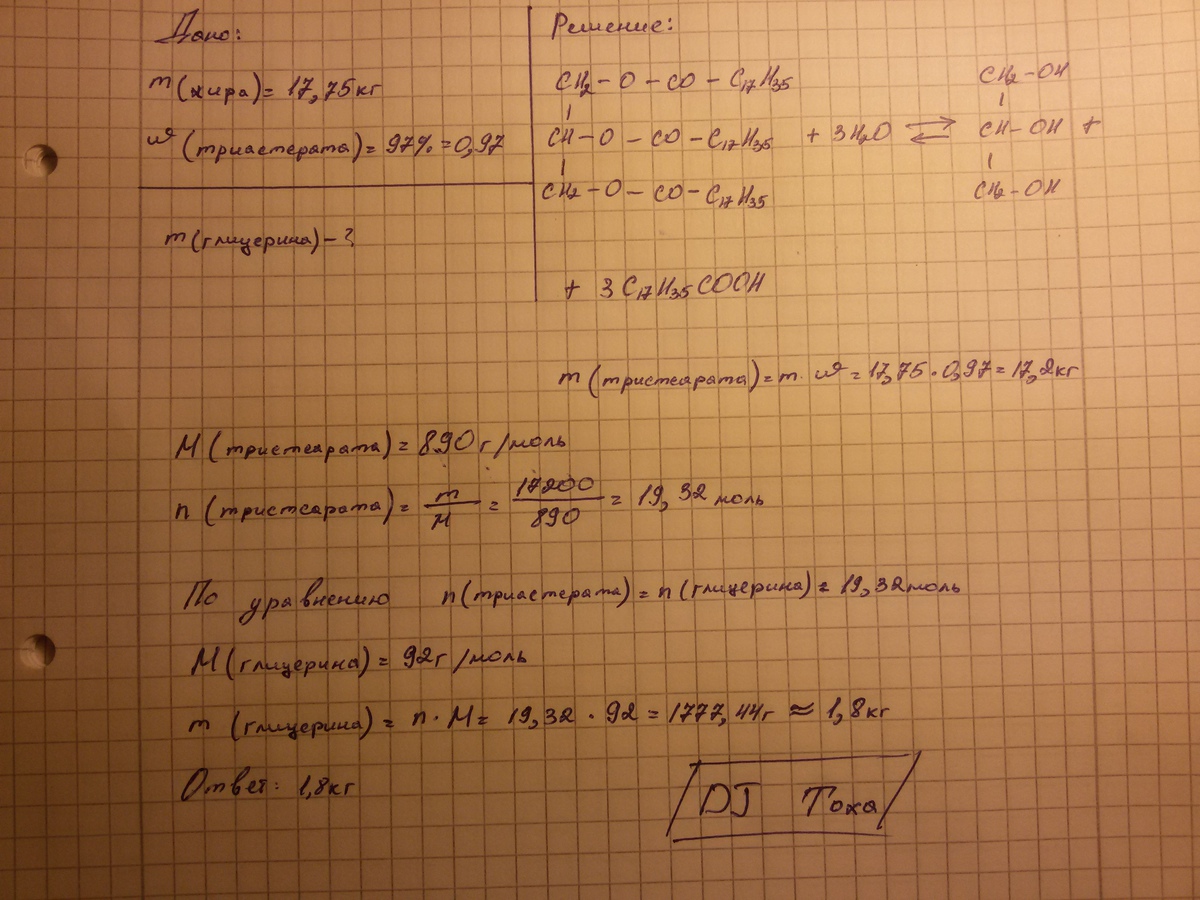 Дано:
m(жира) = 17,75кг
ω (триастерата) = 97% = 0,97
m(глицерина) - ?
Решение:
CH₂ - O - CO - C₁₇H₃₅
CH - O - CO - C₁₇H₃₅ + 3H₂O ⇌ CH - OH +
CH₂ - O - CO - C₁₇H₃₅
CH₂ - OH
CH₂ - OH
+ 3C₁₇H₃₅COOH
m (тристеарата) = m · ω = 17,75 · 0,97 = 17,2кг
M (тристеарата) = 890 г/моль
n (тристеарата) = m/M = 17200/890 = 19,32 моль
По уравнению n(триастерата) = n(глицерина) = 19,32моль
M(глицерина) = 92г/моль
m (глицерина) = n · M = 19,32 · 92 = 1777,44г ≈ 1,8кг
Ответ: 1,8кг
DJ Тоха